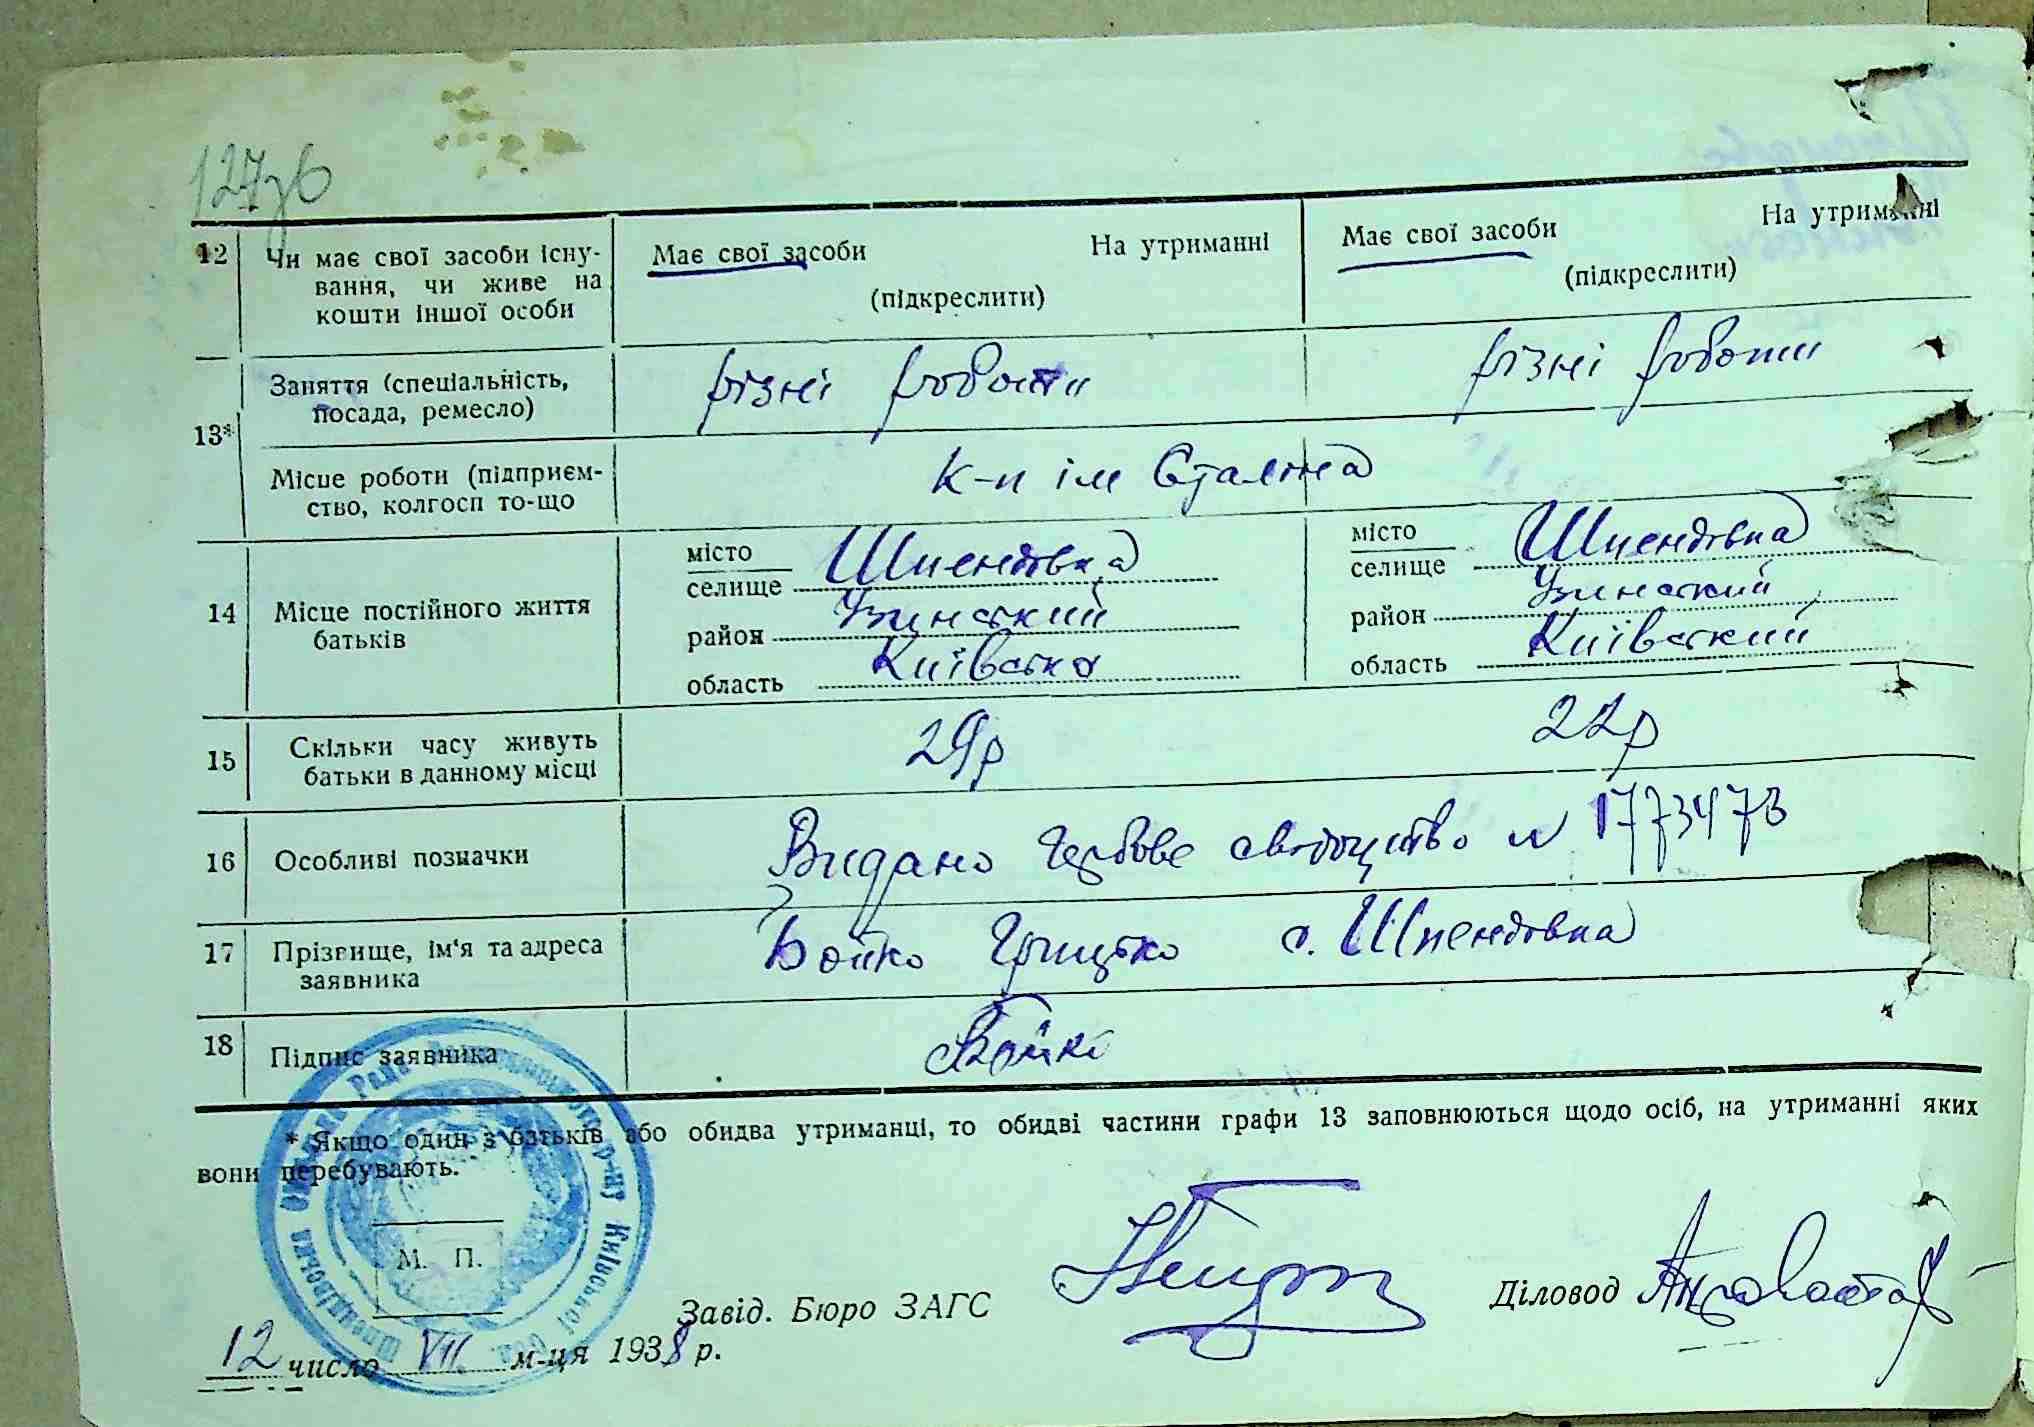 127зв
12 Чи має свої засоби існу- Має свої засоби На утриманні Має свої засоби На утриманні
вання, чи живе на (підкреслити) (підкреслити)
кошти іншої особи
13* Заняття (спеціальність, різні роботи різні роботи
посада, ремесло)
Місце роботи (підприєм- к-п ім Сталіна
ство, колгосп то-що
14 Місце постійного життя батьків
місто Шпендовка місто Шпендовка
селище селище
район Узинський район Узинский
область Київська область Київский
15 Скільки часу живуть 29р 22р
батьки в данному місці
16 Особливі позначки Видано гербове свідоцтво N 1773473
17 Прізвище, ім'я та адреса Бойко Грицько с. Шпендовка
заявника
18 Підпис заявника Бойко
* Якщо один з батьків або обидва утриманці, то обидві частини графи 13 заповнюються щодо осіб, на утриманні яких
вони перебувають.
М. П.
Завід. Бюро ЗАГС Діловод
12 число VII м-ця 1938 р.